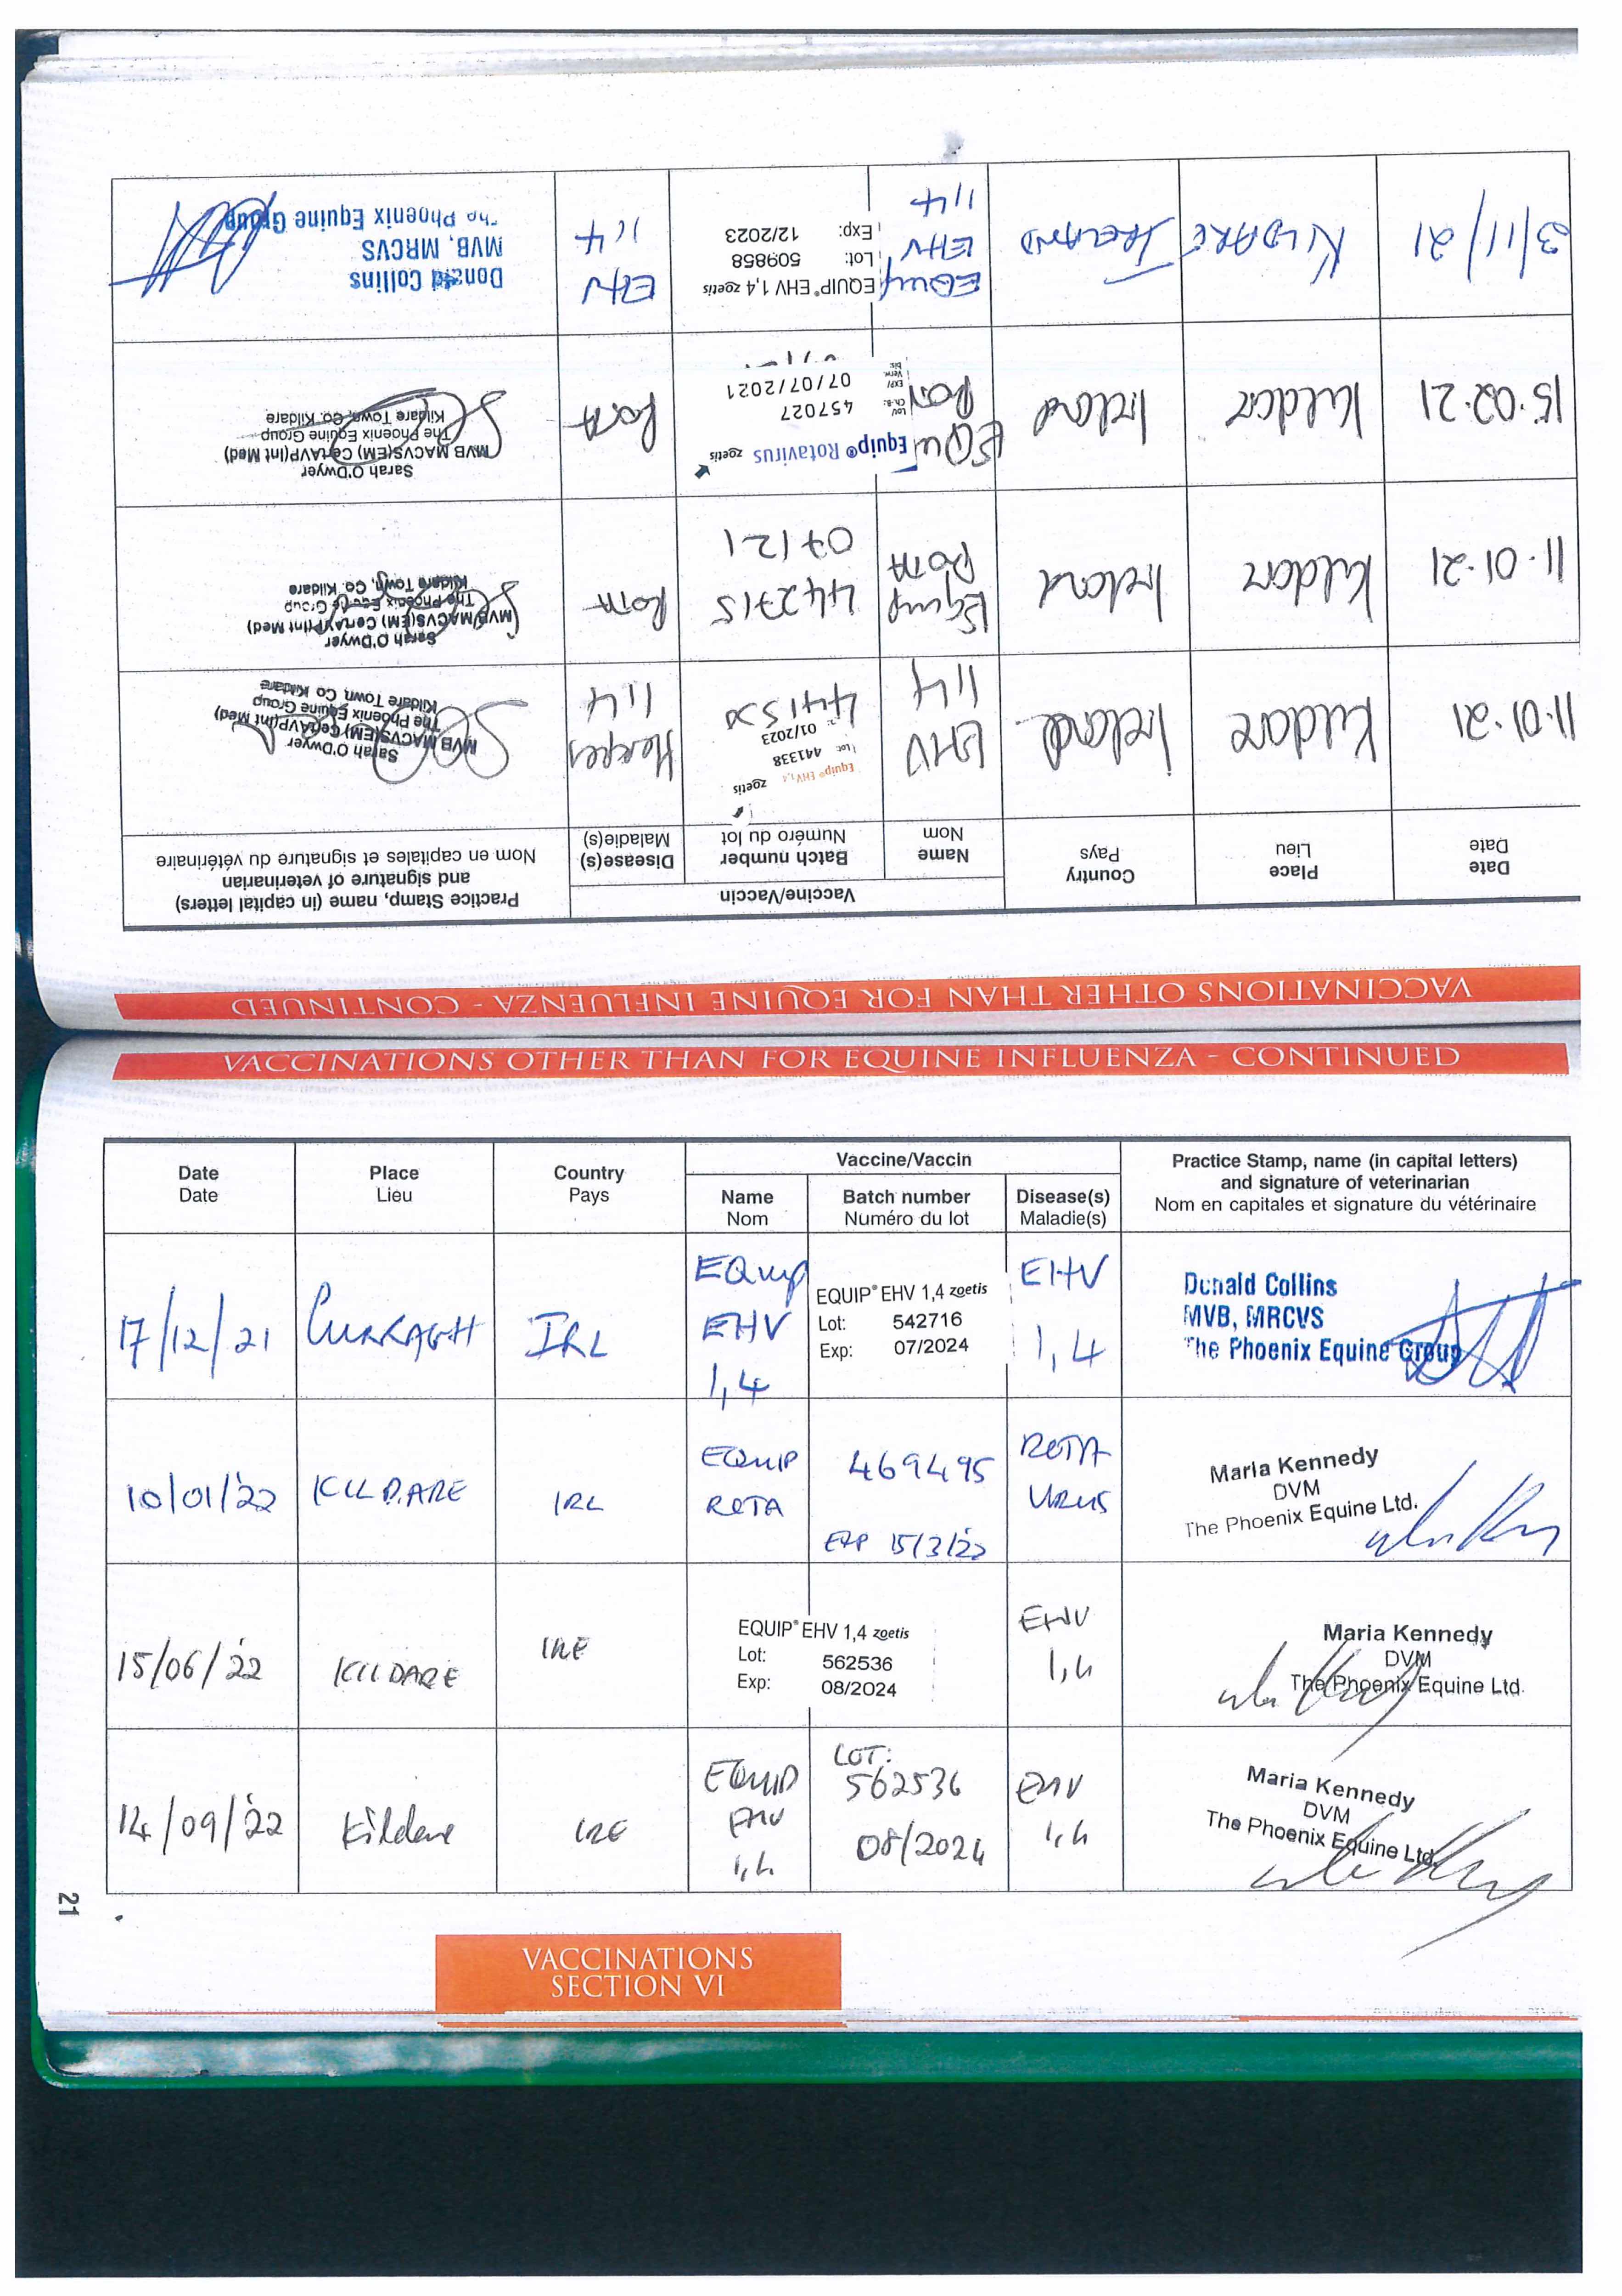 VACCINATIONS OTHER THAN FOR EQUINE INFLUENZA - CONTINUED
Date
Date
Place
Lieu
Country
Pays
Vaccine/Vaccin
Name
Nom
Batch number
Numéro du lot
Disease(s)
Maladie(s)
Practice Stamp, name (in capital letters)
and signature of veterinarian
Nom en capitales et signature du vétérinaire
11.01.21
Kildare
Ireland
EHV
1,4
Equip® EHV 1,4 zoetis
Lot: 441338
01/2023
Herpes
1,4
Sarah O'Dwyer
MVB MACVS(EM) CertAVP(Int Med)
The Phoenix Equine Group
Kildare Town, Co Kildare
11.01.21
Kildare
Ireland
Equip
ROTA
442715
07/21
ROTA
Sarah O'Dwyer
MVB MACVS(EM) CertAVP(Int Med)
The Phoenix Equine Group
Kildare Town, Co. Kildare
15.02.21
Kildare
Ireland
Equip® Rotavirus zoetis
457027
07/07/2021
Rota
Sarah O'Dwyer
MVB MACVS(EM) CertAVP(Int Med)
The Phoenix Equine Group
Kildare Town, Co. Kildare
3/11/21
KILDARE
IRELAND
EQuip
EHV
1,4
EQUIP® EHV 1,4 zoetis
Lot: 509858
Exp: 12/2023
EHV
1,4
Donald Collins
MVB, MRCVS
The Phoenix Equine Group
VACCINATIONS OTHER THAN FOR EQUINE INFLUENZA - CONTINUED
Date
Date
Place
Lieu
Country
Pays
Vaccine/Vaccin
Name
Nom
Batch number
Numéro du lot
Disease(s)
Maladie(s)
Practice Stamp, name (in capital letters)
and signature of veterinarian
Nom en capitales et signature du vétérinaire
17/12/21
CURRAGH
IRL
EQuip
EHV
1,4
EQUIP® EHV 1,4 zoetis
Lot: 542716
Exp: 07/2024
EHV
1,4
Donald Collins
MVB, MRCVS
The Phoenix Equine Group
10/01/22
KILDARE
IRL
EQUIP
ROTA
469495
EXP 15/3/22
ROTA
VIRUS
Maria Kennedy
DVM
The Phoenix Equine Ltd.
15/06/22
KILDARE
IRE
EQUIP® EHV 1,4 zoetis
Lot: 562536
Exp: 08/2024
EHV
1,4
Maria Kennedy
DVM
The Phoenix Equine Ltd.
14/09/22
Kildare
IRE
EQUIP
EHV
1,4
LOT:
562536
08/2024
EHV
1,4
Maria Kennedy
DVM
The Phoenix Equine Ltd.
21
VACCINATIONS
SECTION VI